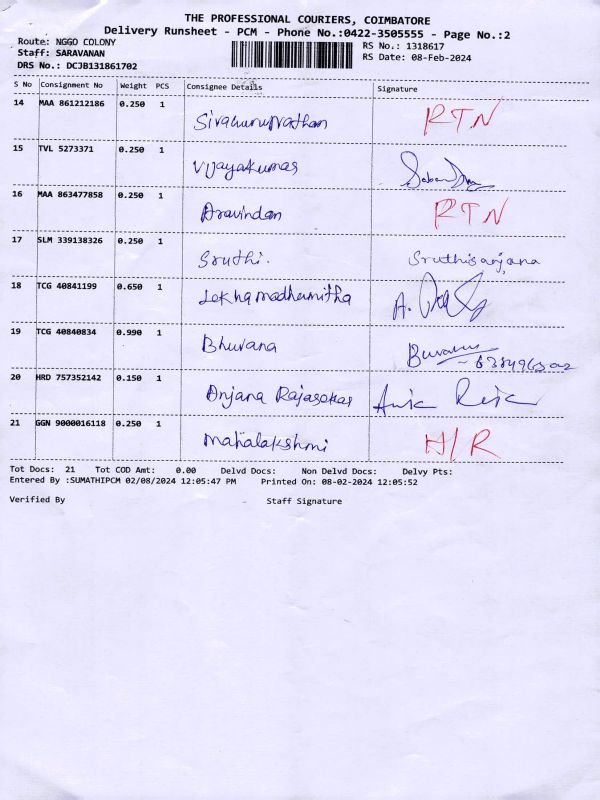 THE PROFESSIONAL COURIERS, COIMBATORE
Delivery Runsheet - PCM - Phone No.:0422-3505555 - Page No.:2
Route: NGGO COLONY
RS No.: 1318617
Staff: SARAVANAN
RS Date: 08-Feb-2024
DRS No.: DCJB131861702
S No Consignment No Weight PCS Consignee Details Signature
14 MAA 861212186 0.250 1 RTN
15 TVL 5273371 0.250 1 Vijayakumar
16 MAA 863477858 0.250 1 Aravindan RTN
17 SLM 339138326 0.250 1 Sruthi. Sruthisanjana
18 TCG 40841199 0.650 1 Lekhamadhumitha A.
19 TCG 40840834 0.990 1 Bhuvana
20 HRD 757352142 0.150 1 Anjana Rajasekar
21 GGN 9000016118 0.250 1 Mahalakshmi H/R
Tot Docs: 21 Tot COD Amt: 0.00 Delvd Docs: Non Delvd Docs: Delvy Pts:
Entered By :SUMATHIPCM 02/08/2024 12:05:47 PM Printed On: 08-02-2024 12:05:52
Verified By Staff Signature